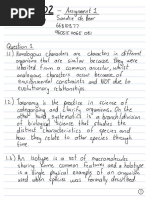 02 - Assignment 1
de Beer
Question 1
1.1) Homologous characters are characters in different
organisms that are similar because they were
inherited from a common ancestor, whilst
analogous characters occur because of
environmental constraints and NOT due to
evolutionary relationships.
1.2) Taxonomy is the practice in science of
categorizing and classifying organisms. On the
other hand systematics is a branch/division
of biological science that studies the
distinct characteristics of species and how
they relate to other species through
time.
1.3) An Isotype is a set of macromolecules
sharing common features and a holotype
is a single physical example of an organism
used when species was formally described.
1